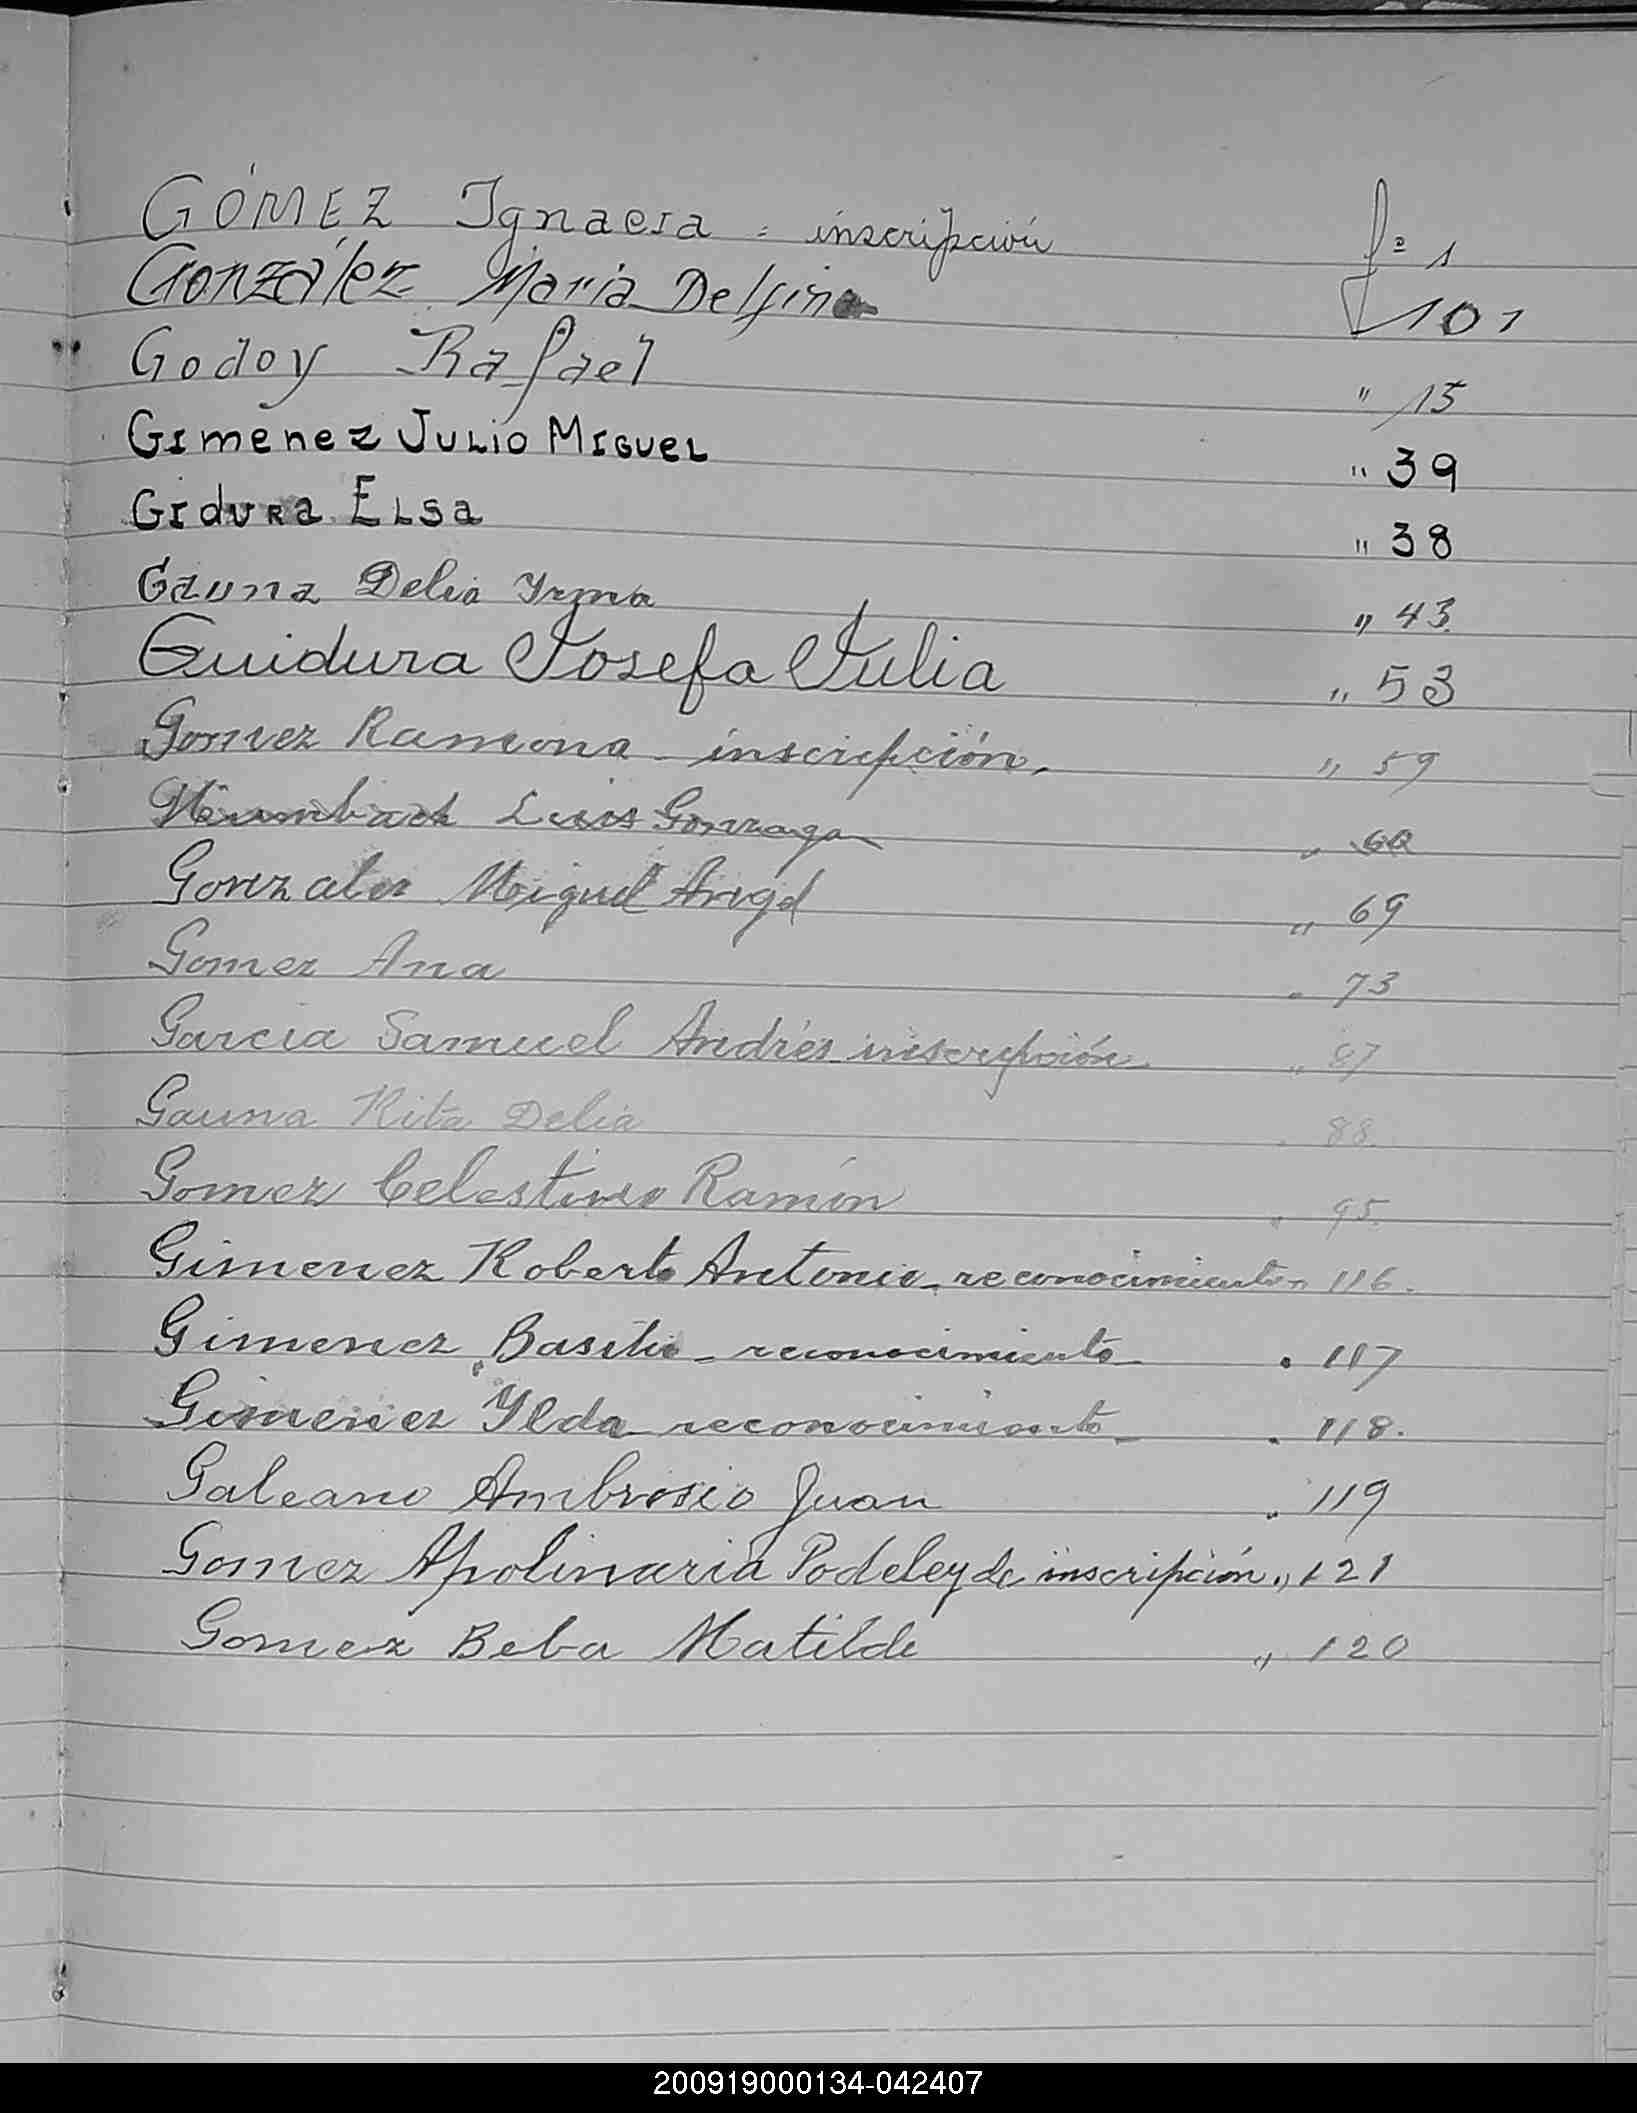 GÓMEZ Ignacia = inscripción fº 1
González María Delfina 101
Godoy Rafael " 15
Gimenez Julio Miguel " 39
Gidura Elsa " 38
Gauna Delia Yrma " 43
Guidura Josefa Julia " 53
Gomez Ramona - inscripción. " 59
Luis Gonzaga " 60
Gonzalez Miguel Angel " 69
Gomez Ana " 73
Garcia Samuel Andrés inscripción " 87
Gauna Rita Delia " 88.
Gomez Celestino Ramón " 95.
Gimenez Roberto Antonio - reconocimiento " 116.
Gimenez Basilio - reconocimiento - " 117
Gimenez Ylda - reconocimiento - " 118.
Galeano Ambrosio Juan " 119
Gomez Apolinaria Podeley de inscripción " 121
Gomez Beba Matilde " 120
200919000134-042407